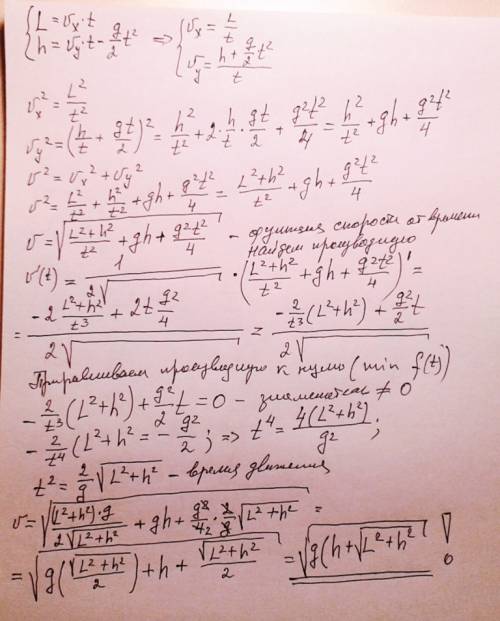 { L = υₓ·t
{ h = υᵧ·t − g/2 t² ⇒ { υₓ = L/t
{ υᵧ = (h + g/2 t²)/t
υₓ² = L²/t²
υᵧ² = (h/t + gt/2)² = h²/t² + 2·h/t·gt/2 + g²t²/4 = h²/t² + gh + g²t²/4
υ² = υₓ² + υᵧ²
υ² = L²/t² + h²/t² + gh + g²t²/4 = (L²+h²)/t² + gh + g²t²/4
υ = √((L²+h²)/t² + gh + g²t²/4) – функция скорости от времени
Найдем производную
υ'(t) = 1/(2√) · ((L²+h²)/t² + gh + g²t²/4)' =
= (−2 (L²+h²)/t³ + 2t g²/4)/(2√) = (−2/t³ (L²+h²) + g²/2 t)/(2√)
Приравниваем производную к нулю (min f(t))
−2/t³ (L²+h²) + g²/2 t = 0 – знаменатель ≠ 0
−2/t⁴ (L²+h² = −g²/2 ; ⇒ t⁴ = 4(L²+h²)/g² ;
t² = 2/g √(L²+h²) – время движения
υ = √((L²+h²)·g/(2√(L²+h²)) + gh + g²/4₂ · 2/g √(L²+h²)) =
= √(g(√(L²+h²)/2) + h + √(L²+h²)/2) = √(g(h+√(L²+h²)) !